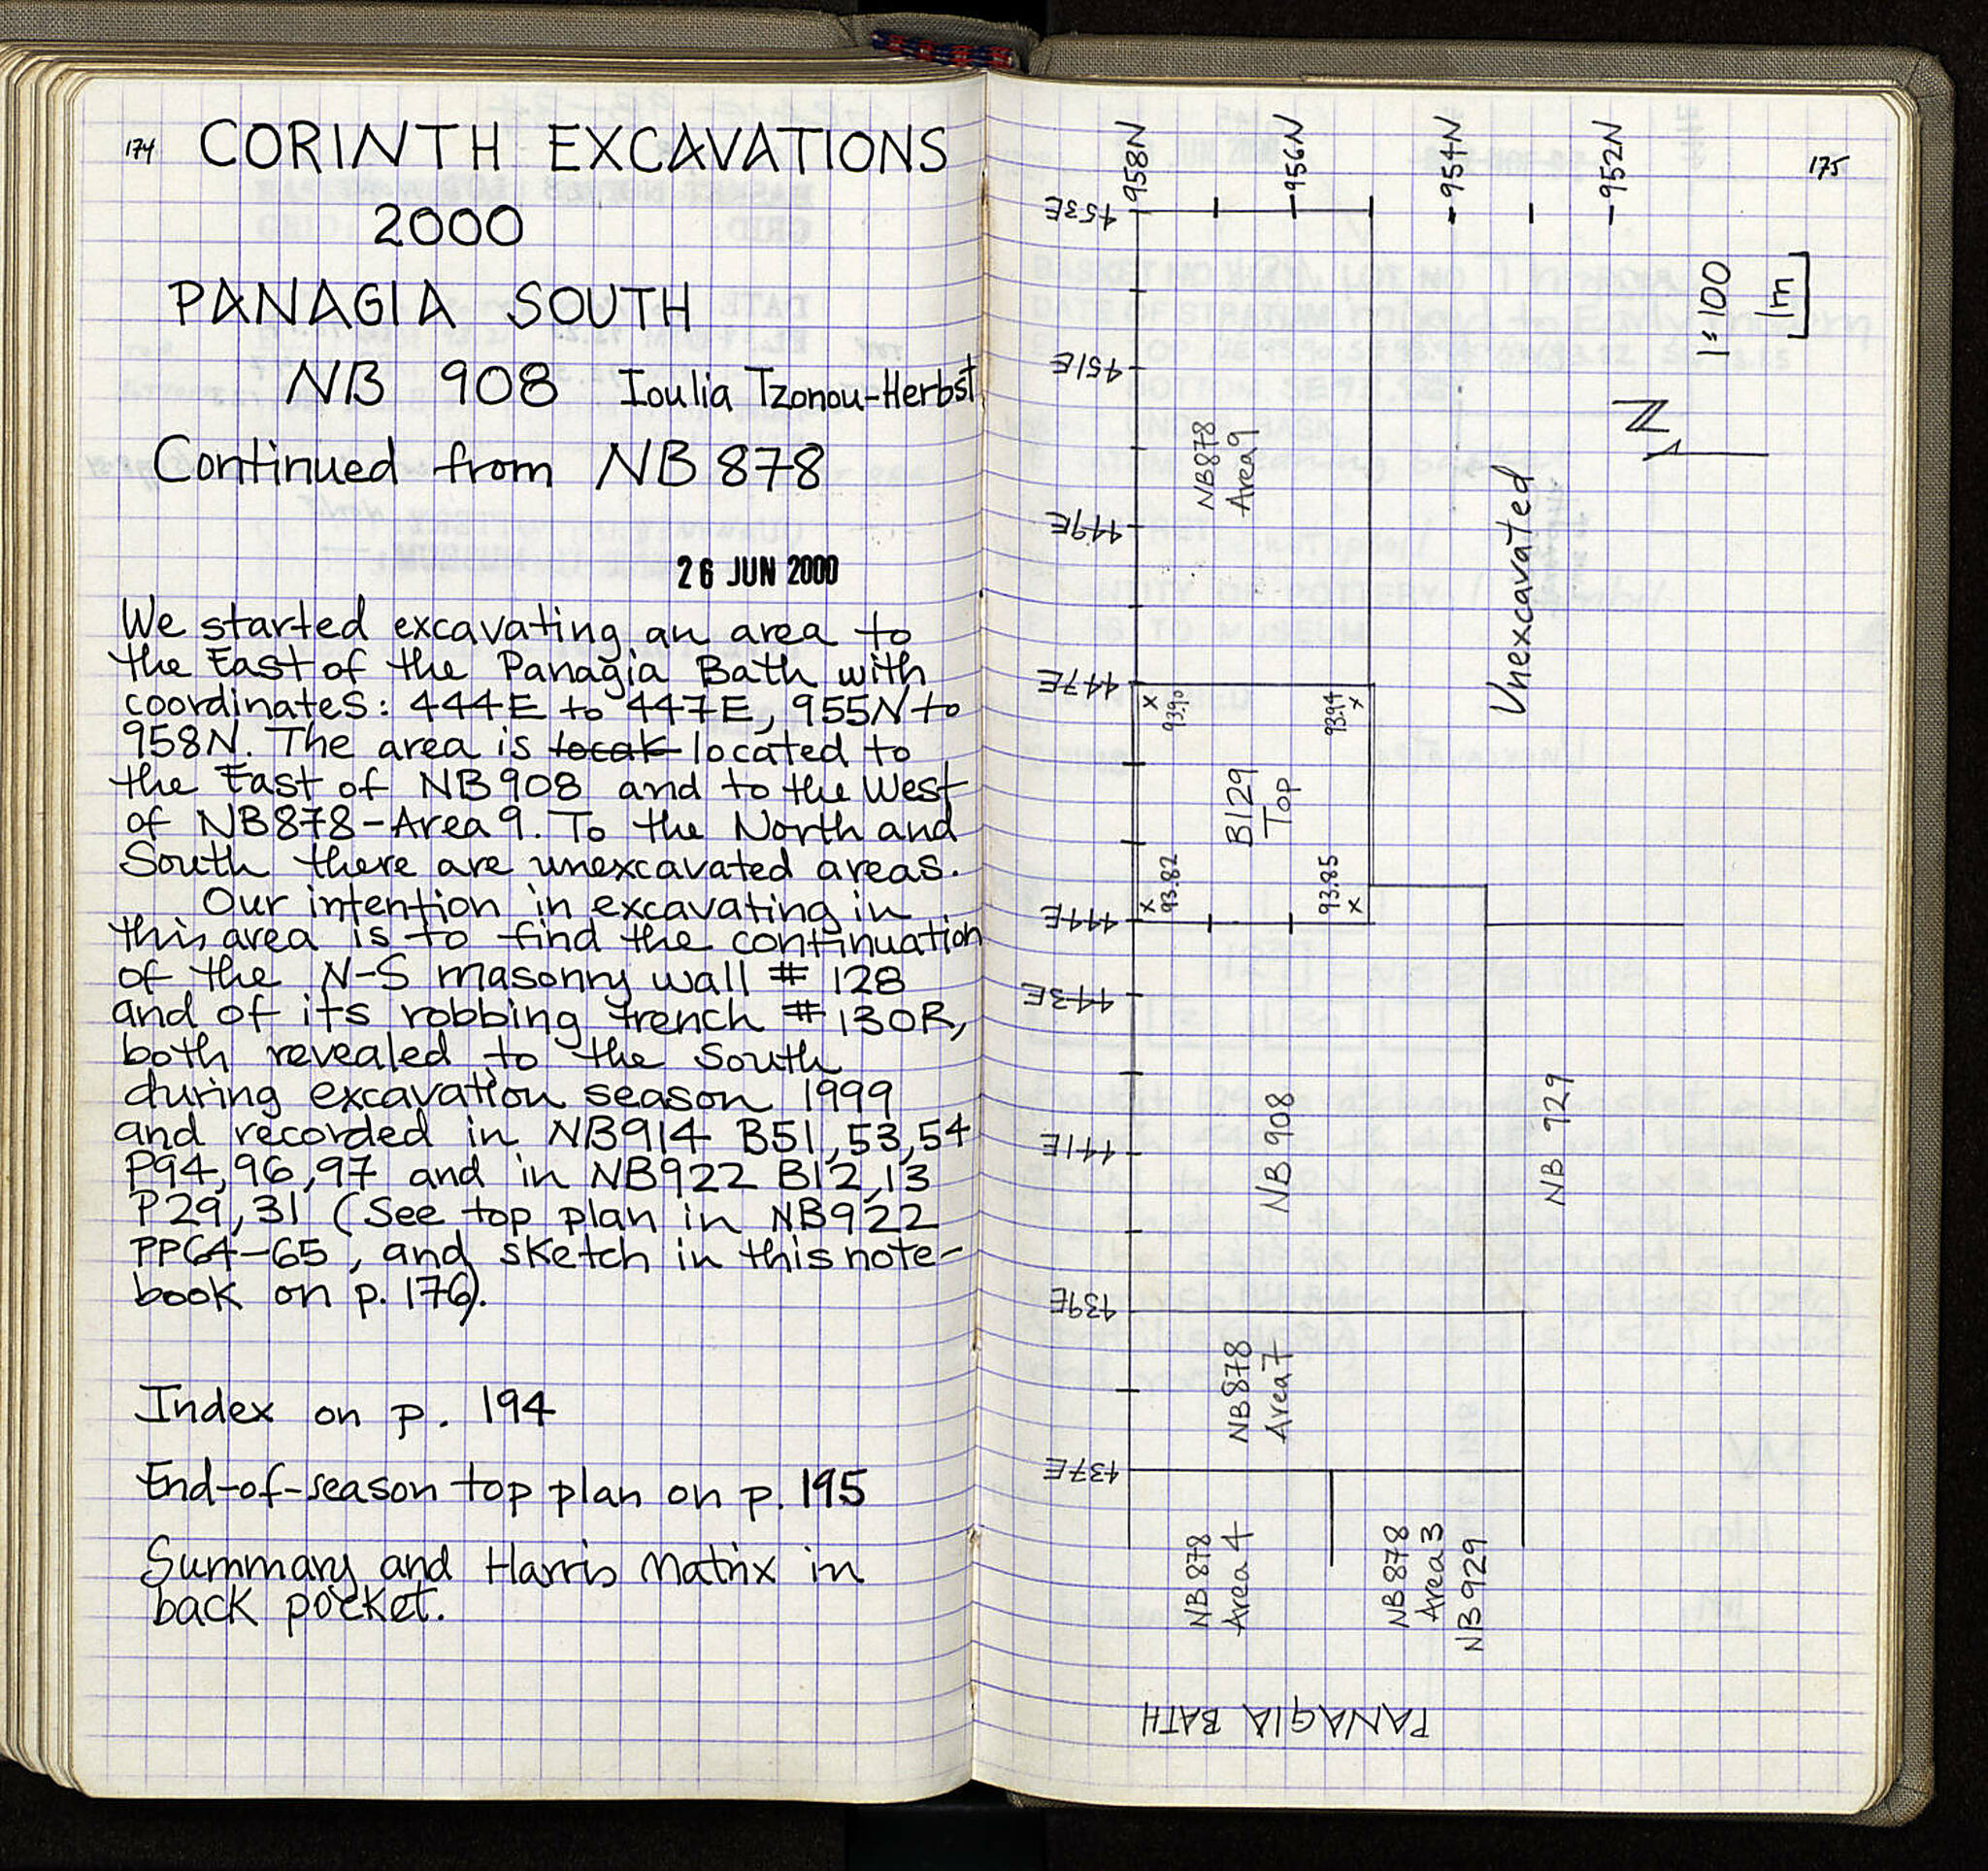 174
CORINTH EXCAVATIONS
2000
PANAGIA SOUTH
NB 908 Ioulia Tzonou-Herbst
Continued from NB 878
26 JUN 2000
We started excavating an area to
the East of the Panagia Bath with
coordinates: 444E to 447E, 955N to
958N. The area is locak located to
the East of NB908 and to the West
of NB878-Area 9. To the North and
South there are unexcavated areas.
Our intention in excavating in
this area is to find the continuation
of the N-S masonry wall # 128
and of its robbing trench # 130R,
both revealed to the South
during excavation season 1999
and recorded in NB914 B51,53,54
P94,96,97 and in NB922 B12,13
P29,31 (See top plan in NB922
PP64-65, and sketch in this note-
book on p. 176).
Index on p. 194
End-of-season top plan on p. 195
Summary and Harris Matrix in
back pocket.
175
958N
956N
954N
952N
453E
451E
449E
447E
444E
443E
441E
439E
437E
1:100
1m
N
NB878
Area 9
Unexcavated
93.90
93.94
B129
Top
93.82
93.85
NB 908
NB 929
NB 878
Area 7
NB 878
Area 4
NB 878
Area 3
NB 929
PANAGIA BATH